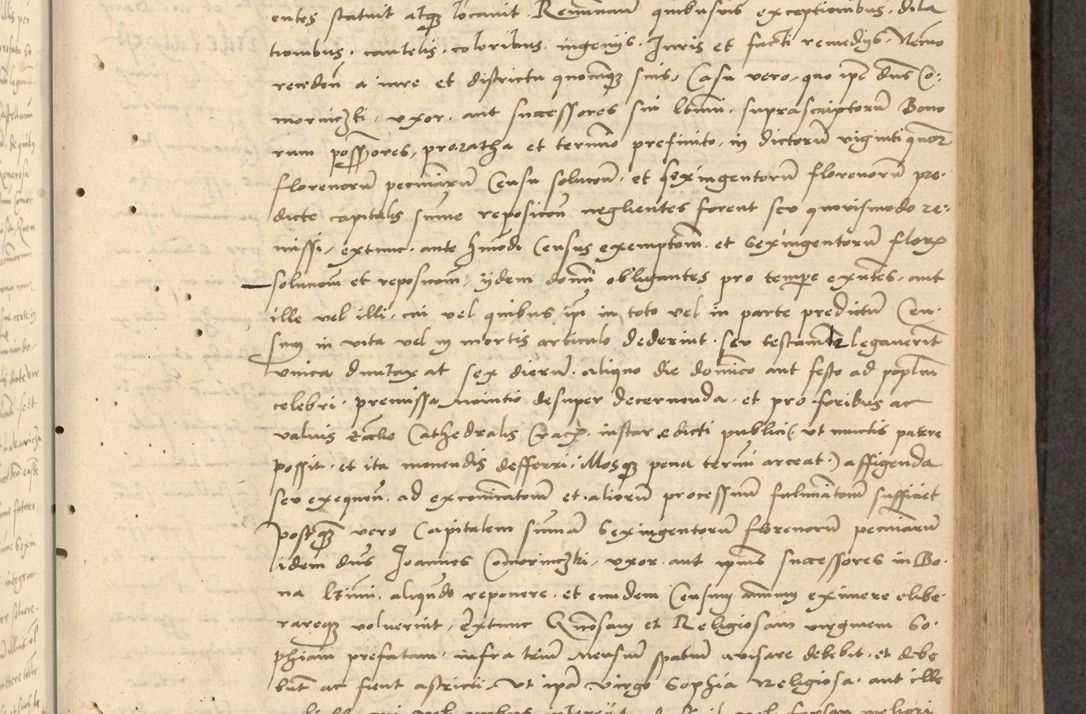 entes statuit atq locavit. Remmam quibusvis exceptionibus. dila
tionibus. cautelis. coloribus. ingenijs. Juris et facti remedijs. Nemo
a iure et districtu quocunq suis, Casu vero, quo ipe dns Co:
mornicZki, uxor. aut successores sui ltimi. suprascriptorū Bono
rum possores, proratha et termio prefinito, in dictorū viginti quor
florenorū pecuiarū Census solucou. et sexingentorū florenorū pre:
dicte capitalis sume reposicou neglientes forent seu quovismodo re:
missi, extunc. ante hmodi Census exemptom. et Sexingentorū flor
solucou et reposicou, ijdem domi obligantes pro tempe exntes. aut
ille vel illi. cui vel quibus ipi in toto vel in parte predictū Cen:
sum in vita vel in mortis articulo dederint. seu testamtr legaverit
unica duntaxat sex dierū. aliquo die domico aut festo ad poplm
celebri. premissa desuper decernenda. et pro foribus ac
valvis Ecclie Cathedralis Crac, instar edicti publici (ut cunctis patere
possit. et ita monendos defferri. illosq pena termi arceat) affigenda
seu exequen. ad excomcatoum et aliorū processuū fulmatoum suffciet
Postq vero Capitalem sumā Sexingentorū florenorū pecuiarū
idem dns Joannes ComorniczKi, uxor. aut ipius successores in Bo:
na ltimi. aliqndo reponere. et eiusdem Censum annuū eximere elibe:
rareq voluerint, Extunc Gnosam et Religiosam virginem So:
phiam prefatam. infra triū Mensiū spatiū avisare debebit. et debe
būt ac fient astricti. Ut ipa Virgo Sophia Religiosa. aut ille